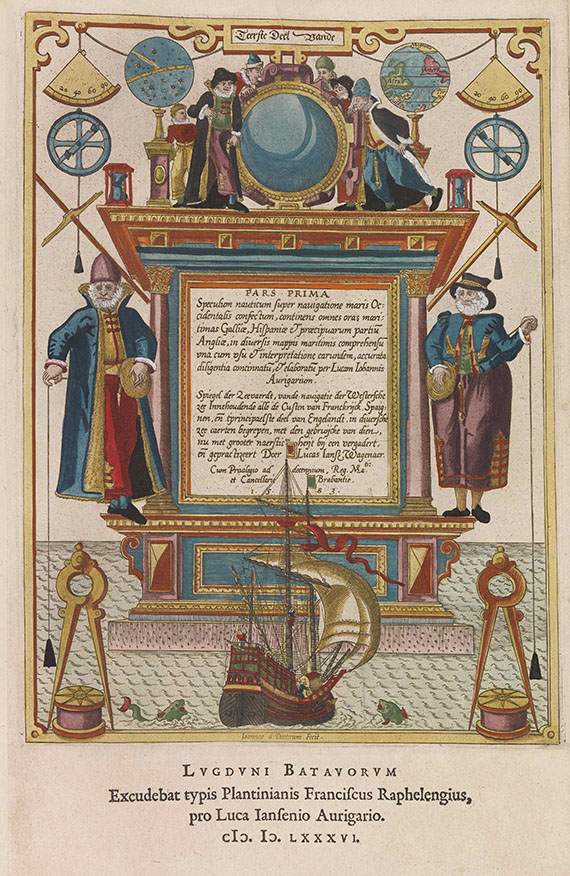 Teerste Deel Vande
20 40 60 90
20 40 60 90
PARS PRIMA
Speculum nauticum super navigatione maris Oc-
cidentalis confectum, continens omnes oras mari-
timas Galliæ, Hispaniæ & præcipuarum partiũ
Angliæ, in diversis mappis maritimis comprehensũ
una cum usu & interpretatione earundem, accurata
diligentia concinnatũ, & elaboratũ per Lucam Iohannis
Aurigarium.
Spiegel der Zeevaerdt, vande navigatie der Westersche
zee Innehoudende alle de Custen van Franckrijck Spaig-
nen, eñ tprincipaelste deel van Engelandt, in diversche
zee caerten begrepen, met den gebruijcke van dien,
nu met grooter naersticheijt bij een vergadert,
eñ gepractizeert Doer Lucas Iansz Wagenaer.
Cum Privilegio ad decennium, Reg. Ma.tis
et Cancellarie Brabantie.
1583.
Ioannes à Doetecum Fecit
LVGDVNI BATAVORVM
Excudebat typis Plantinianis Franciscus Raphelengius,
pro Luca Iansenio Aurigario.
cIↃ. IↃ. LXXXVI.